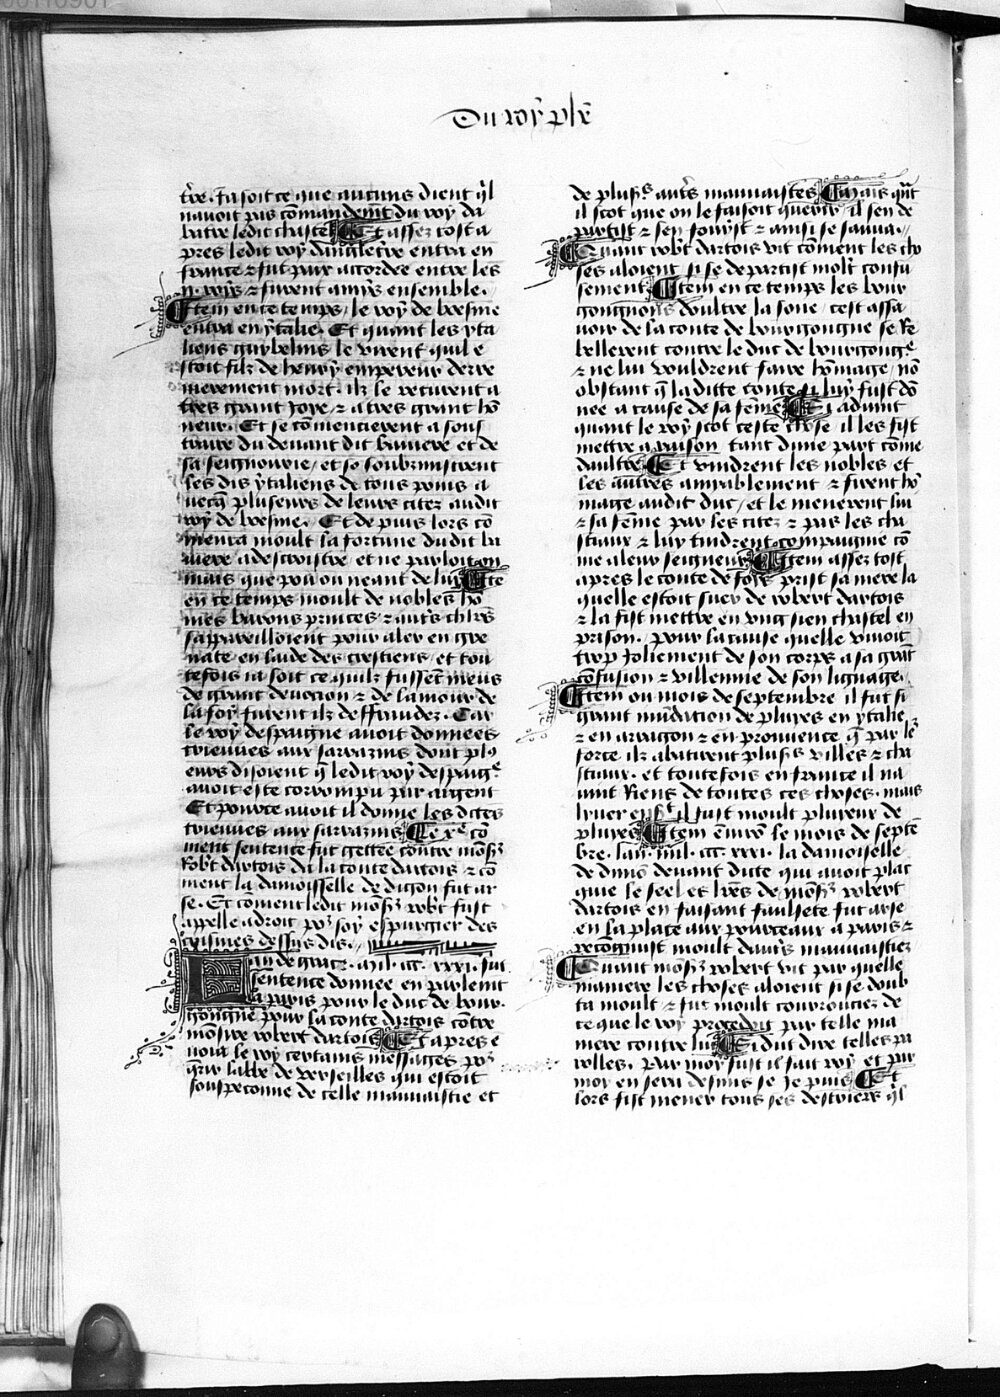 Du roy phē
tr̄e. Ja soit ce que aucuns dient q̄l
nauoit pas cōmandemēt du roy da
batre ledit chastel Et assez tost a
pres ledit roy dangleterre entra en
france ⁊ fut paix acordee entre les
.ij. roys ⁊ furent amys ensemble.
Item en ce temps le roy de besme
entra en ytalie. Et quant les yta
liens guybelins le virent quil e
stoit filz de henry empereur derre
nierement mort. ilz le receurent a
tres grant Joye ⁊ a tres grant hō
neur. Et se cōmencierent a sous
traire du deuant dit bauiere et de
sa seignourie, et so soubzmistrent
les dis ytaliens de tous poins a
uecq̄ pluseurs de leurs citez audit
roy de besme. Et depuis lors cō
menca moult la fortune dudit ba
uiere a descroistre, et ne parloit on
mais que pou ou neant de luy Ite
en ce temps moult de nobles hō
mes barons princes ⁊ aut̄s chlr̄s
sappareilloient pour aler en gre
nate en laide des crestiens, et tou
tefois ia soit ce quilz fussēt meus
de grant deuocion ⁊ de lamour de
la foy furent ilz deffraudez. Car
le roy despaigne auoit donnees
trieuues aux sarrazins dont plus
eurs disoient q̄ ledit roy despaiḡe
auoit este corrompu par argent
Et pource auoit il donne les dictes
trieuues aux sarrazins Le xe cō
ment sentence fut gettee contre mōsr
Rob̄t dartois de la conte dartois ⁊ cō
ment la damoiselle de diuon fut ar
se. Et cōment ledit mōsr rob̄t fust
appelle a droit po² soy espurgier des
crismes dessus dis.
Lan de grace .mil. iij<sup>c</sup>. xxxi. fut
sentence donnee en parlemt
a paris pour le duc de bour
gongne pour la conte dartois cōtre
mōsire robert dartois Et apres e
nuoia le roy certains messages po²
q̄rir labbe de verseilles qui estoit
souspeconne de celle mauuaistie et
de plus̄s aut̄s mauuaistes Mais q̄nt
il scot que on le faisoit querir, il sen de
partist ⁊ sen fouyst ⁊ ainsi se sauua.
Quant rob̄t dartois vit cōment les cho
ses aloient si se departist molt confu
sement Item en ce temps les bour
gongnons doultre la sone, cest assa
uoir de la conte de bourgongne se Re
bellerent contre le duc de bourgonḡe
⁊ ne lui vouldrent faire hōmage, nō
obstant q̄ la ditte conte si luy fust dō
nee a cause de sa fēme Et aduint
quant le roy scot ceste chose il les fist
mettre a raison tant dune part cōme
daultre Et vindrent les nobles et
les autres amyablement ⁊ firent hō
mage audit duc, et le menerent lui
⁊ sa fēme par les citez ⁊ par les cha
steaux ⁊ luy tindrent compaignie cō
me a leur seigneur Item assez tost
apres le conte de foys prist sa mere la
quelle estoit suer de robert dartois
⁊ la fist mettre en vng sien chastel en
prison. pour la cause quelle viuoit
trop Joliement de son corps a sa grāt
cōfusion ⁊ villennie de son lignage.
Item ou mois de septembre il fut si
grant inūdation de pluyes en ytalie
⁊ en arragon ⁊ en prouuence q̄ par le
force ilz abatirent plus̄s villes ⁊ cha
steaux. et toutefois en france il na
uint Riens de toutes ces choses. mais
lyuer ens² il fust moult pluieux de
pluyes Item enuirō le mois de septē
bre. lan. mil. iij<sup>c</sup>. xxxi. la damoiselle
de diuon deuant dicte qui auoit plac
quie le seel es lr̄es de mōsr robert
dartois en faisant faulsete fut arse
en la place aux pourceaux a paris ⁊
recognust moult daut̄s mauuaistiez
Quant mōsr robert vit par quelle
maniere les choses aloient si se doub
ta moult ⁊ fut moult courrouciez de
ce que le roy procedoit par telle ma
niere contre lui Si dut dire telles pa
rolles. Par moy fust il fait roy et par
moy en sera desmis se Je puis Et
lors fist mener tous ses destriers q̄l